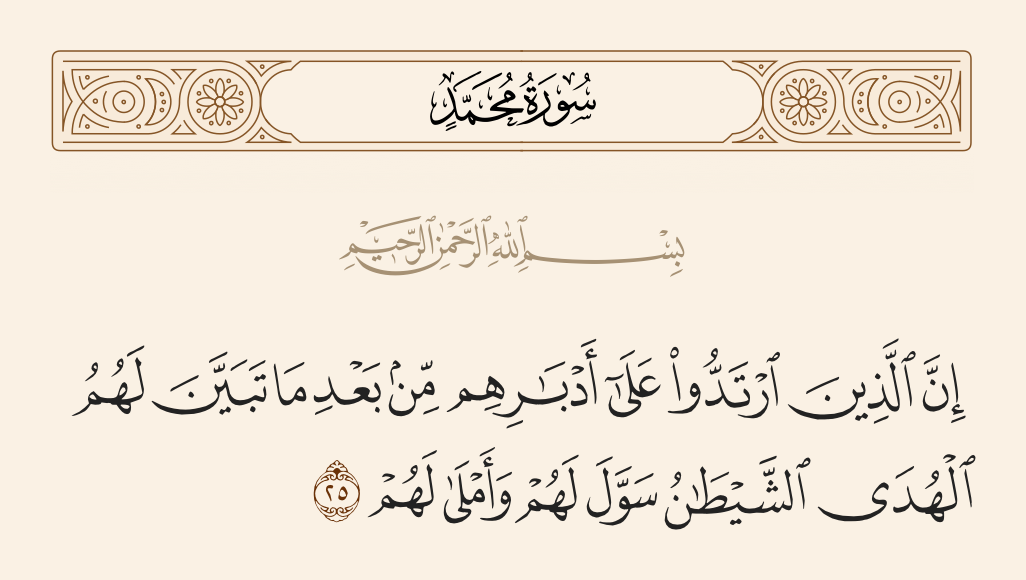 سُورَةُ مُحَمَّدٍ
بِسْمِ ٱللَّهِ ٱلرَّحْمَٰنِ ٱلرَّحِيمِ
إِنَّ ٱلَّذِينَ ٱرْتَدُّوا۟ عَلَىٰٓ أَدْبَـٰرِهِم مِّنۢ بَعْدِ مَا تَبَيَّنَ لَهُمُ
ٱلْهُدَى ٱلشَّيْطَـٰنُ سَوَّلَ لَهُمْ وَأَمْلَىٰ لَهُمْ ٢٥